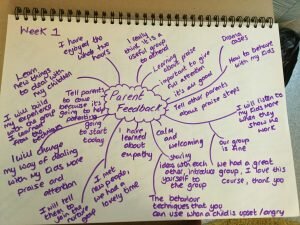 Week 1
I have
enjoyed the
whole two
hours
I really
think it's a
useful group
to others
Drama
cases
How to behave
with my kids
Learning
about praise
important to give
full attention
its all good
Learn
new things
to deal with
to my
children
Tell parents
to come
because it's
going to help
parenting
Parent
Feedback
Tell other parents
about praise steps
I will build
my experience
with the group
from the
beginning
going to
start today
I will listen to
my kids more
when they
show me
work
I will change
my way of dealing
with my kids more
praise and
attention
I have
learned about
empathy
calm
and
welcoming
our group
is fine
sharing
ideas with each
other, introduce
yourself to
the group
we had a great
group, I love this
course, thank you
I met
new people,
we had a
lovely time
I will tell
them to
join the
nurture
group
The behaviour
techniques that you
can use when a child is upset/angry